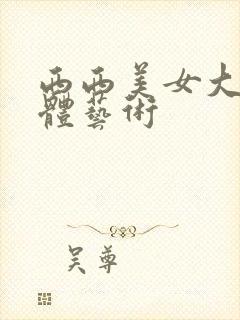 西西美女大
體藝术
吴尊